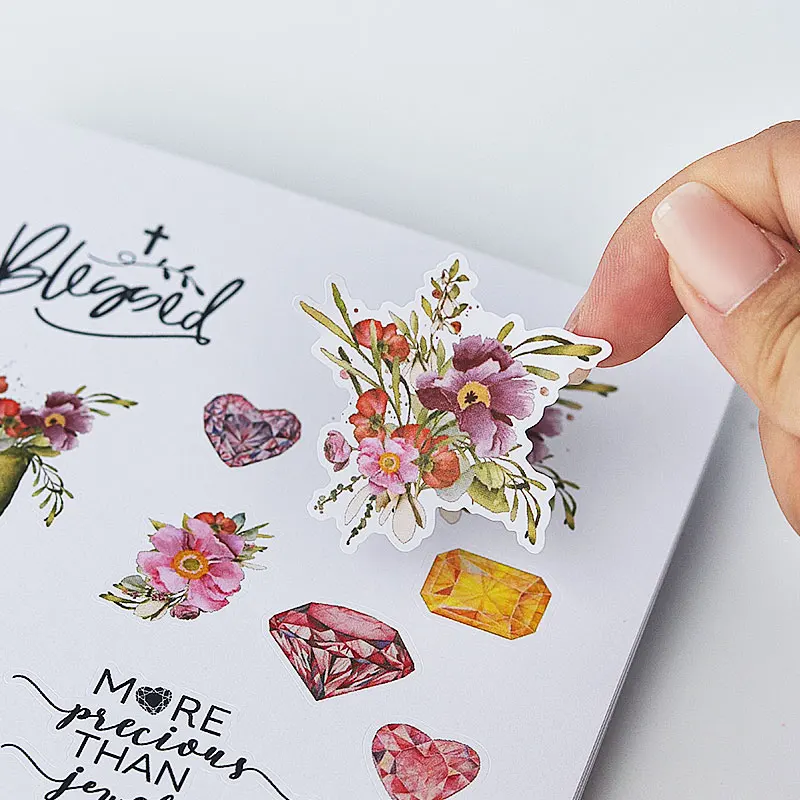 Blessed
MORE
precious
THAN